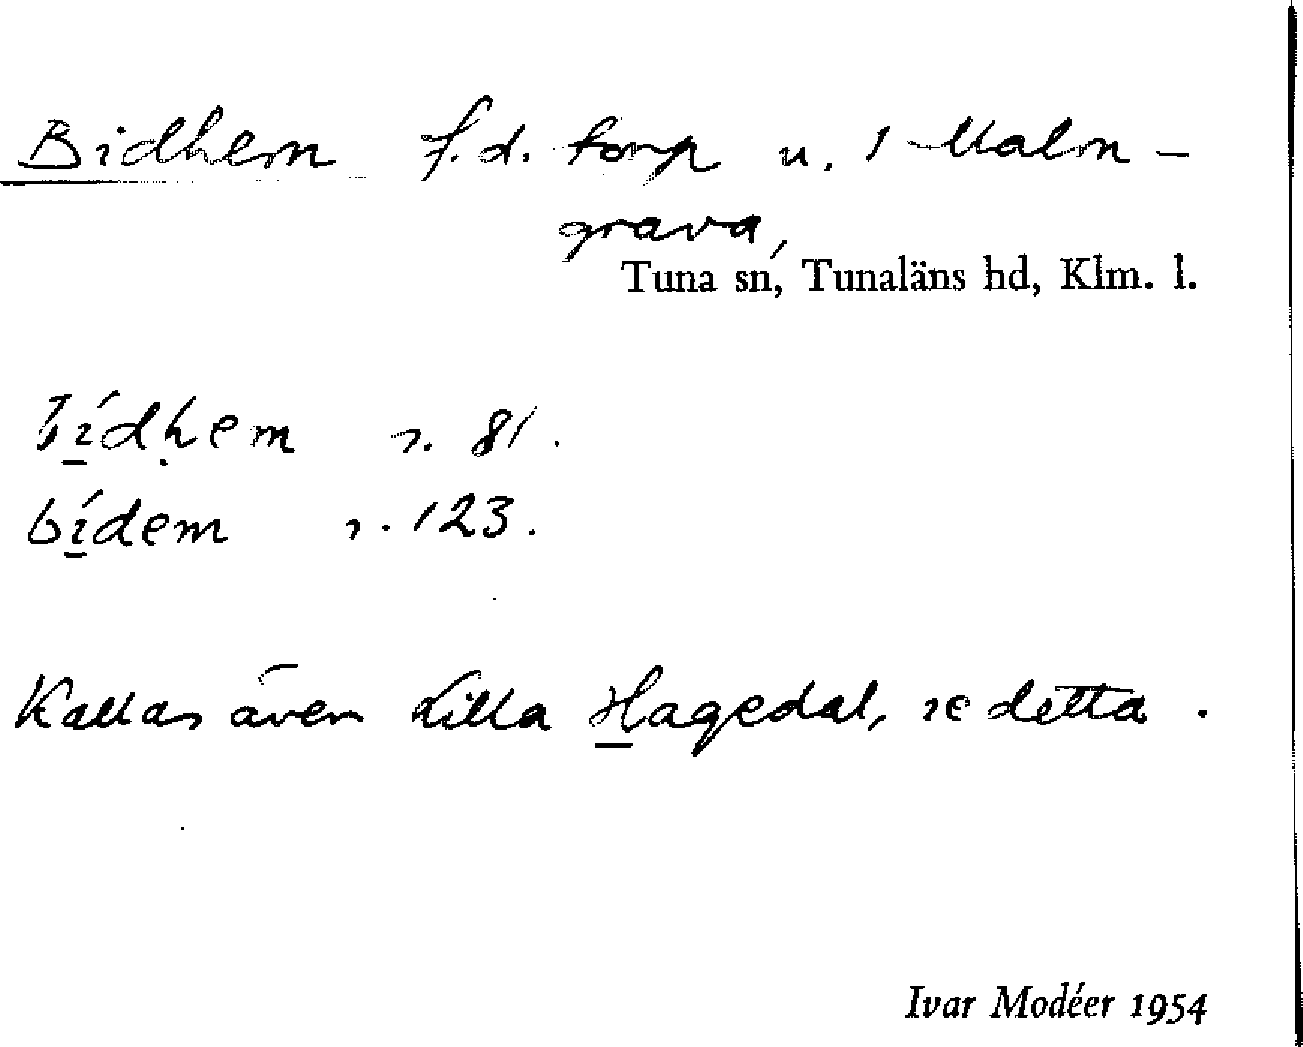 Bidhem f.d. torp u. 1 Malm-
grava,
Tuna sn, Tunaläns hd, Klm. l.
bídhem s. 81.
bídem s. 123.
Kallas även Lilla Hagedal, se detta.
Ivar Modéer 1954